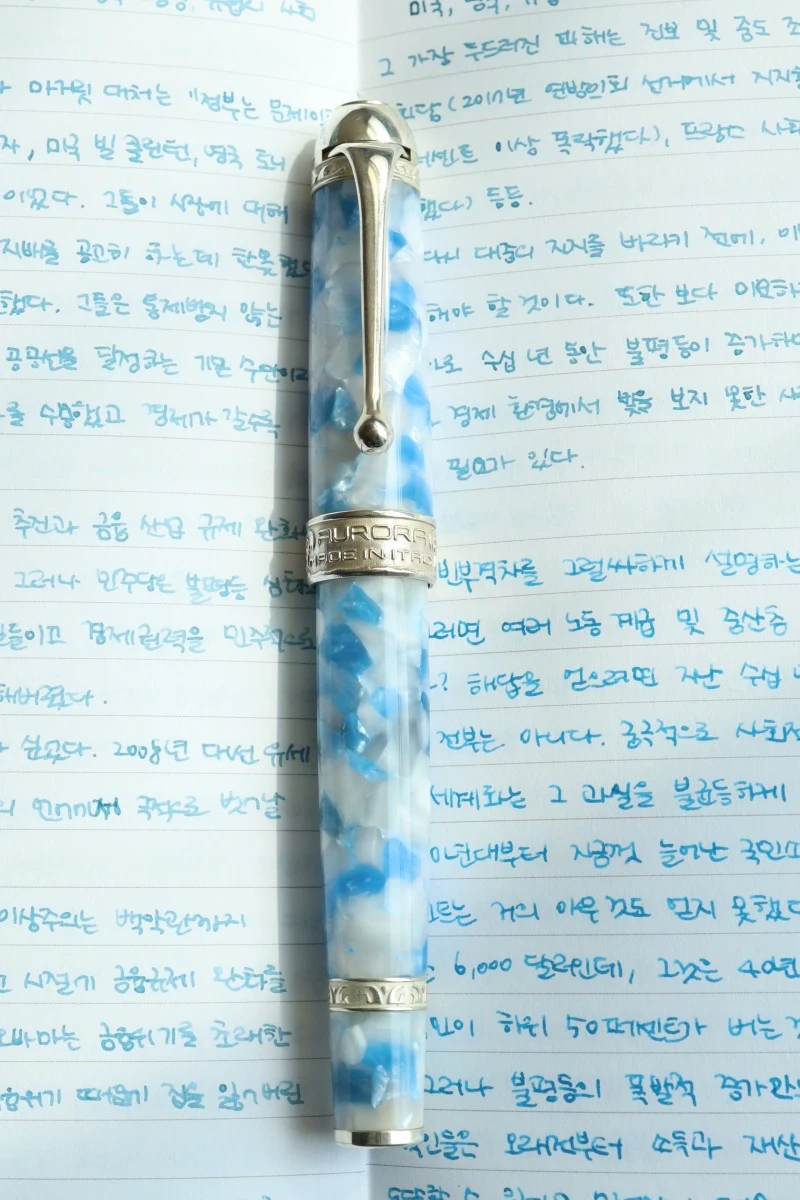 마가릿 대처는 "정부는 문제이
자, 미국 빌 클린턴, 영국 토니
이었다. 그들이 시장에 대해
지배를 공고히 하는데 한몫했다
했다. 그들은 통제범위 않는
공공선을 달성하는 기본 수단이라
를 수용했고 경제가 갈수록
추진과 금융 산업 규제 완화
그러나 민주당은 불평등 심화
들이고 경제권력을 민주적으로
해버렸다.
쉽다. 2008년 대선 유세
의 벗어날
이상주의는 백악관까지
시절에 금융규제 완화를
오바마는 금융위기를 초래한
위기 때문에 집을 잃어버린
미국,
그 가장 두드러진 피해는 진보 및 중도
회당(2017년 연방의회 선거에서 지지
센트 이상 폭락했다), 프랑스 사회
했다) 등등.
다시 대중의 지지를 바라기 전에,
해야 할 것이다. 또한 보다
로 수십 년 동안 불평등이 증가하
경제 환경에서 빛을 보지 못한
필요가 있다.
AURORA
MADE IN ITALY
빈부격차를 그럴싸하게 설명하는
러면 여러 노동 계급 및 중산층
? 해답을 얻으려면 지난 수십
전부는 아니다. 궁극적으로 사회
세계화는 그 과실을 불균등하게
0년대부터 지금껏 늘어난 국민소
트는 거의 아무것도 얻지 못했다
6,000 달러인데, 그것은 40년
인이 하위 50퍼센트가 버는
그러나 불평등의 폭발적 증가만
국인들은 오래전부터 소득과 재산